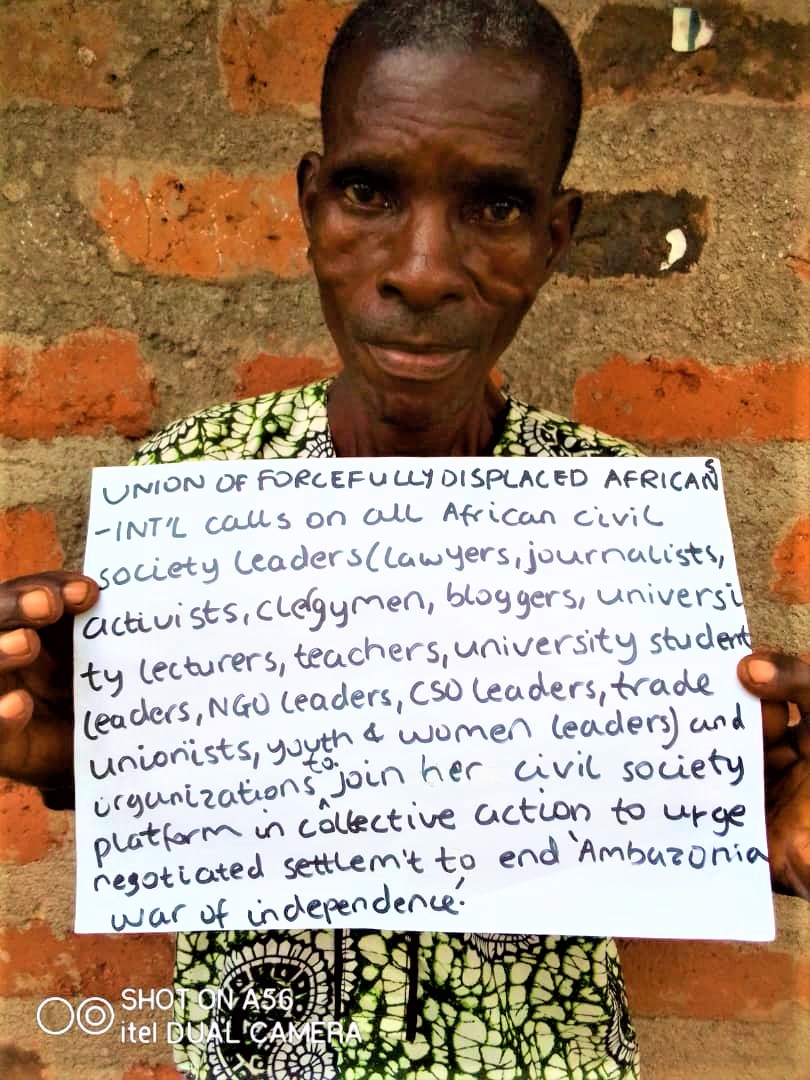 UNION OF FORCEFULLY DISPLACED AFRICANS
-INT'L calls on all African civil
society leaders (lawyers, journalists,
activists, clergymen, bloggers, universi
ty lecturers, teachers, university student
leaders, NGO leaders, CSO leaders, trade
unionists, youth & women leaders) and
organizations to join her civil society
platform in collective action to urge
negotiated settlem't to end 'Ambazonia
war of independence'.
SHOT ON A56
itel DUAL CAMERA